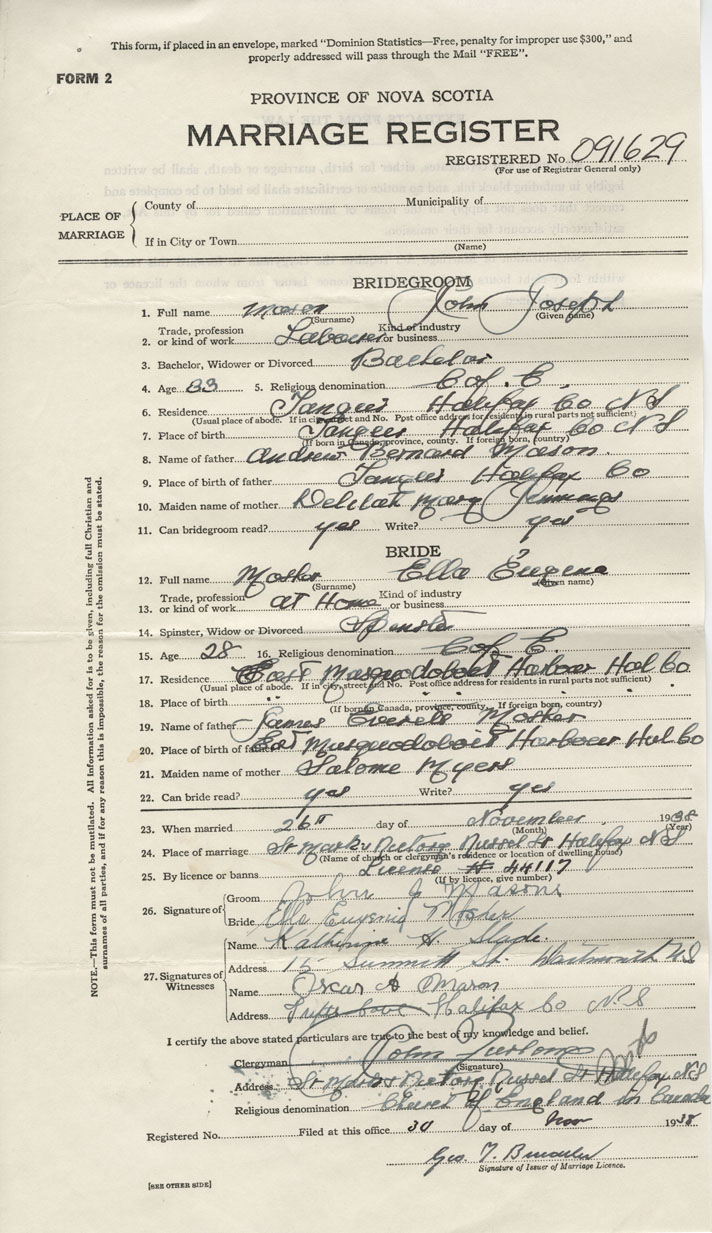 This form, if placed in an envelope, marked "Dominion Statistics—Free, penalty for improper use $300," and
properly addressed will pass through the Mail "FREE".
FORM 2
PROVINCE OF NOVA SCOTIA
MARRIAGE REGISTER
REGISTERED No. 091629
(For use of Registrar General only)
PLACE OF MARRIAGE
County of Municipality of
If in City or Town
(Name)
BRIDEGROOM
1. Full name Mason John Joseph
(Surname) (Given name)
Trade, profession Kind of industry
2. or kind of work Labourer or business
3. Bachelor, Widower or Divorced Bachelor
4. Age 33 5. Religious denomination C of E.
6. Residence Tangier Halifax Co N S
(Usual place of abode. If in city street and No. Post office address for residents in rural parts not sufficient)
7. Place of birth Tangier Halifax Co N S
(If born in Canada, province, county. If foreign born, country)
8. Name of father Andrew Bernard Mason
9. Place of birth of father Tangier Halifax Co
10. Maiden name of mother Delilah Mary Jennings
11. Can bridegroom read? yes Write? yes
BRIDE
?
12. Full name Mosher Ella Eugena
(Surname) (Given name)
Trade, profession Kind of industry
13. or kind of work at Home or business
14. Spinster, Widow or Divorced Spinster
15. Age 28 16. Religious denomination C of E.
17. Residence East Musquodoboit Harbour Hal Co
(Usual place of abode. If in city, street and No. Post office address for residents in rural parts not sufficient)
18. Place of birth " " " " "
(If born in Canada, province, county. If foreign born, country)
19. Name of father James Everett Mosher
20. Place of birth of father East Musquodoboit Harbour Hal Co
21. Maiden name of mother Salome Myers
22. Can bride read? yes Write? yes
23. When married 26th day of November 1938
(Month) (Year)
24. Place of marriage St Marks Rectory Russel St Halifax N S
(Name of church or clergyman's residence or location of dwelling house)
25. By licence or banns License # 44117
(If by licence, give number)
26. Signature of
Groom John J Mason
Bride Ella Eugenia Mosher
27. Signatures of Witnesses
Name Katherine H. Slade.
Address 15 Summit St. Dartmouth N.S
Name Oscar A Mason
Address Tufts Cove Halifax Co N.S
I certify the above stated particulars are true to the best of my knowledge and belief.
Clergyman John Furlong
(Signature)
Address St Marks Rectory Russel St Halifax N S
Religious denomination Church of England in Canada
Registered No. Filed at this office 30 day of Nov 1938
Geo. T.
Signature of Issuer of Marriage Licence.
[SEE OTHER SIDE]
NOTE.—This form must not be mutilated. All information asked for is to be given, including full Christian and
surnames of all parties, and if for any reason this is impossible, the reason for the omission must be stated.